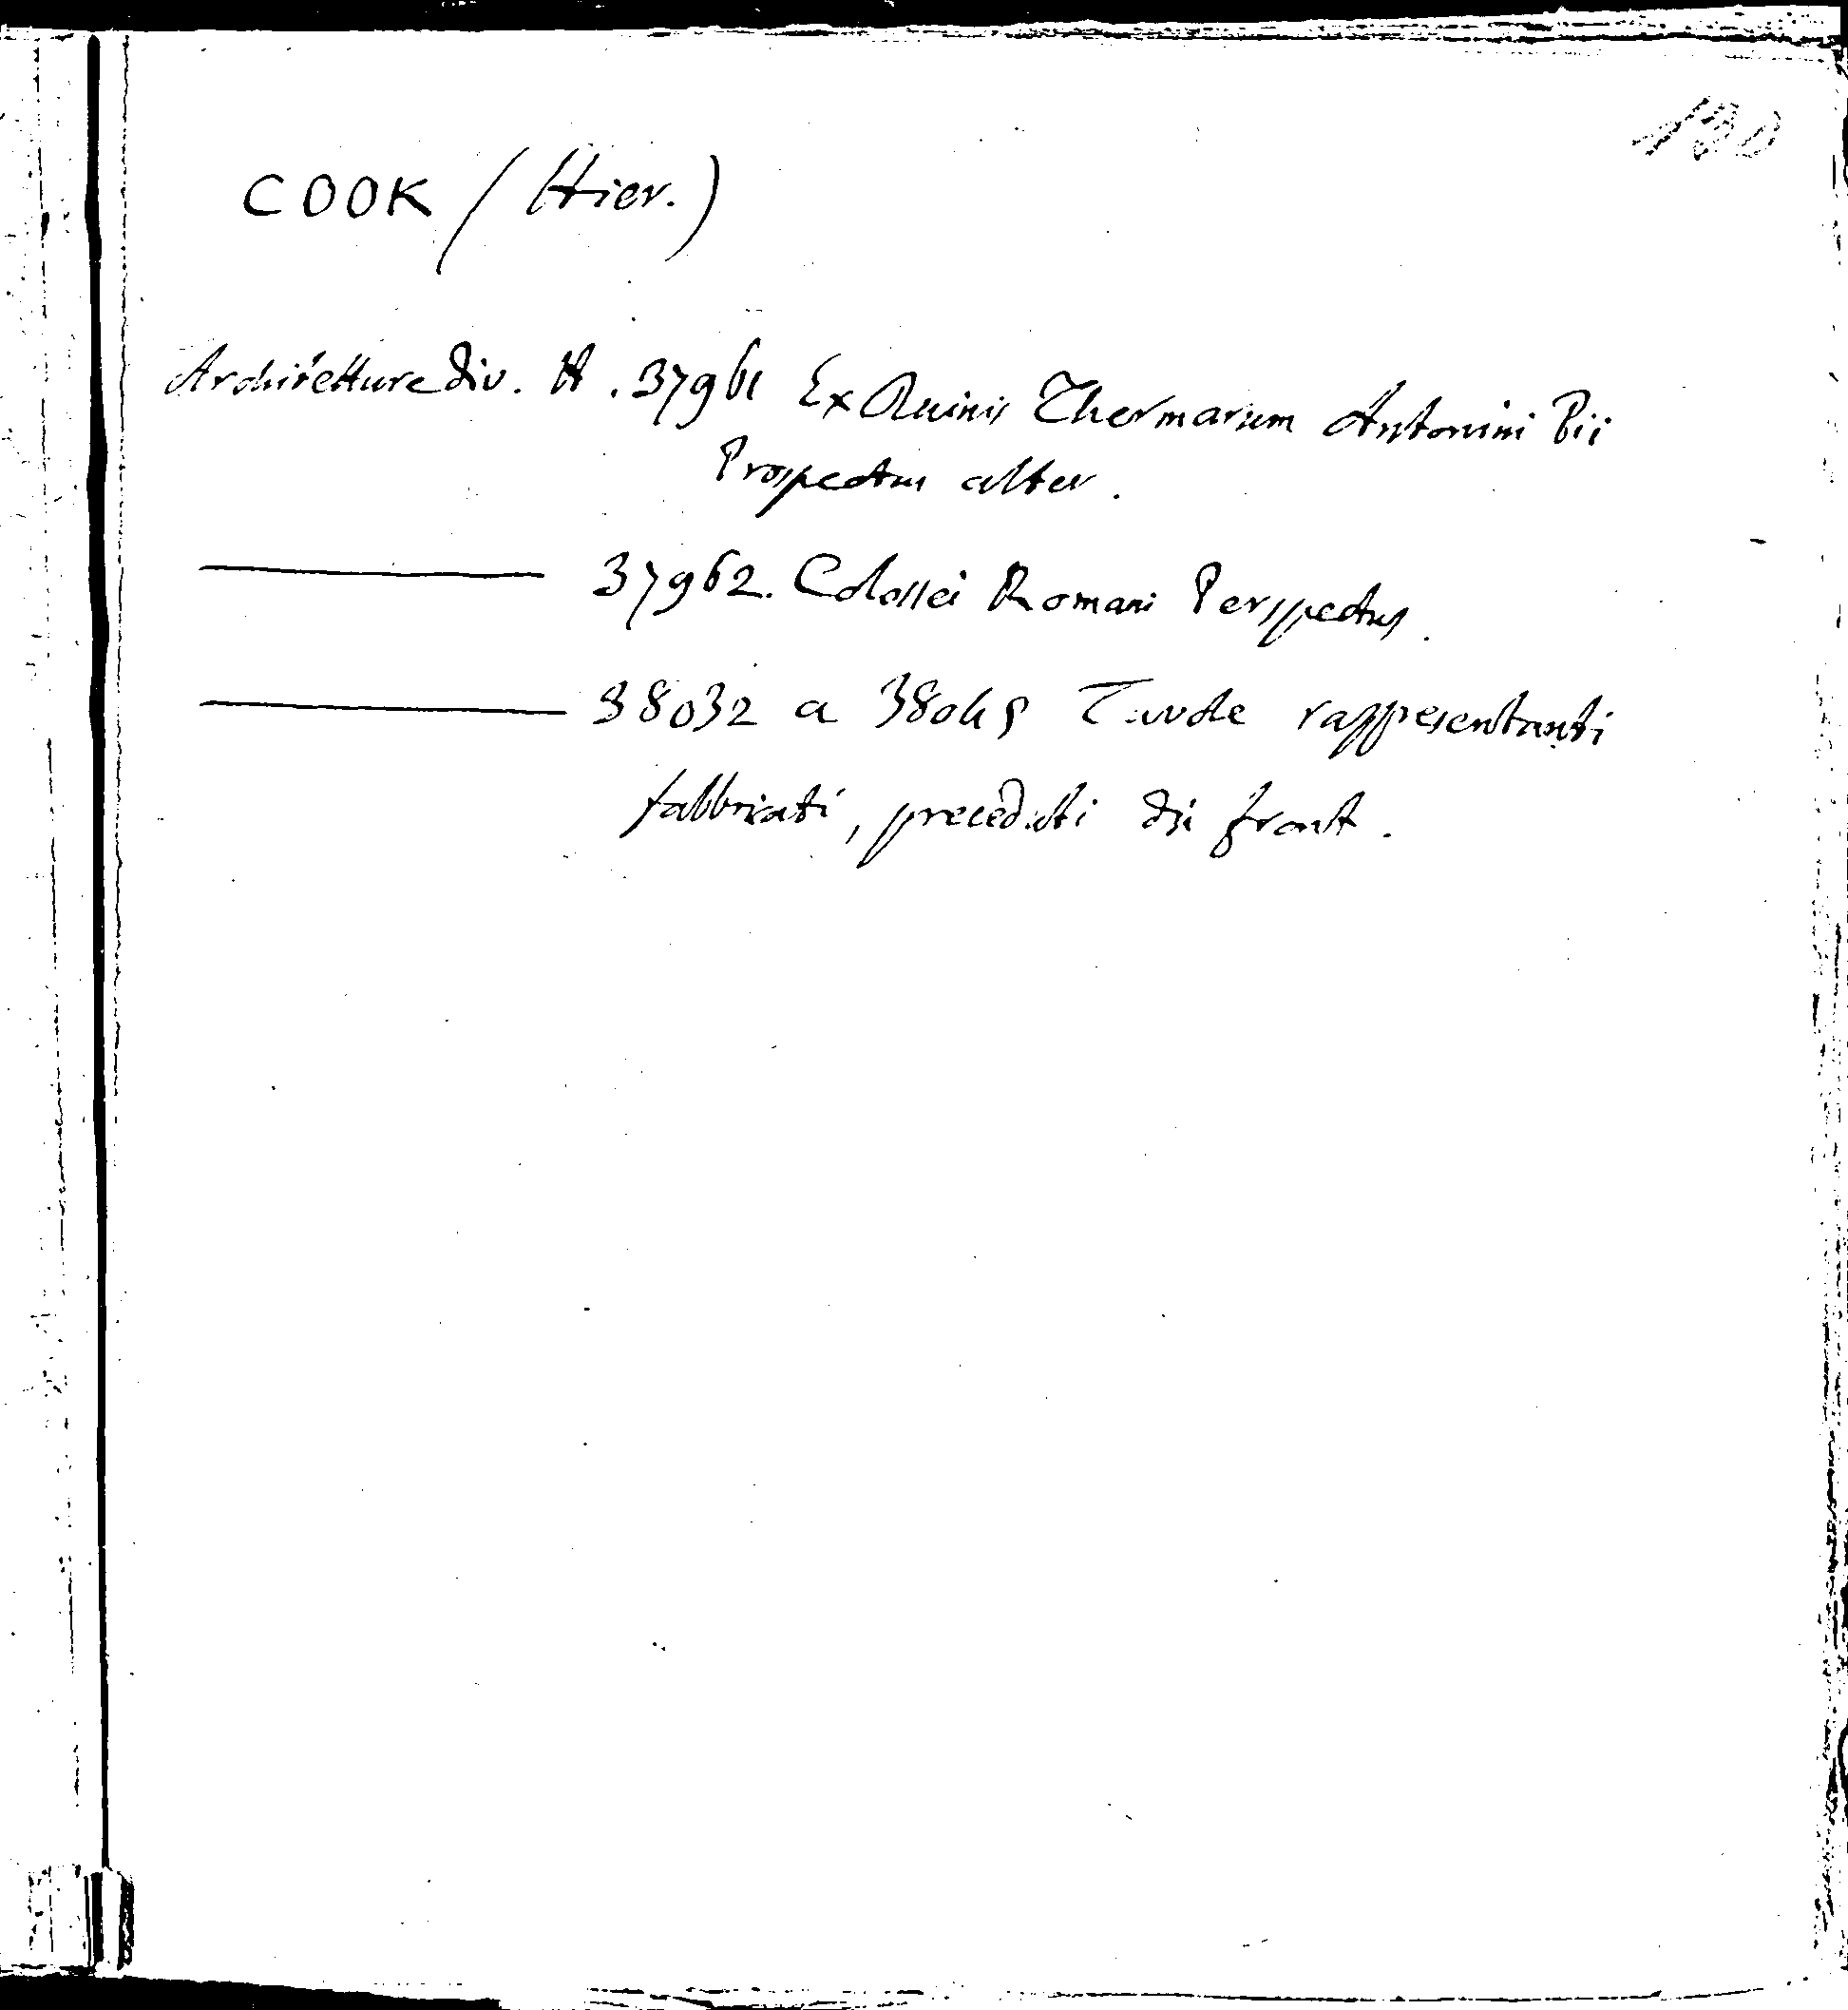 130
COOK (Hier.)
Architetture div. H. 37961 Ex Ruinis Thermarum Antonini Pii
Prospectus alter.
37962. Colossei Romani Perspectus.
38032 a Tavole rappresentanti
fabbricati, preceduti di front.